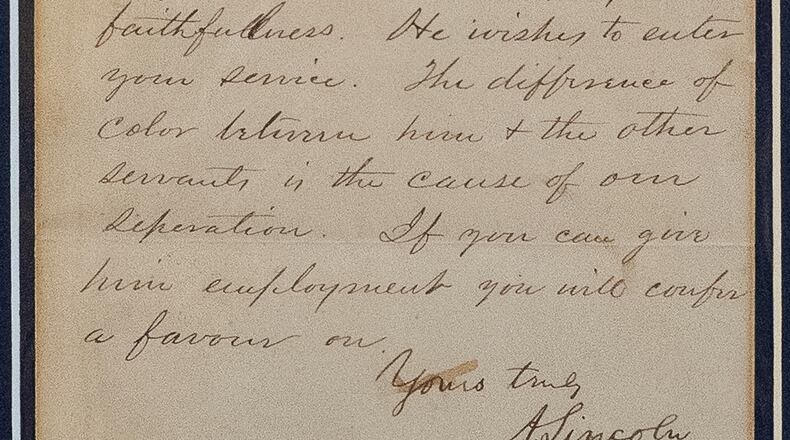 faithfullness. He wishes to enter
your service. The difference of
color between him & the other
servants is the cause of our
seperation. If you can give
him employment you will confer
a favour on
Yours truly
A Lincoln